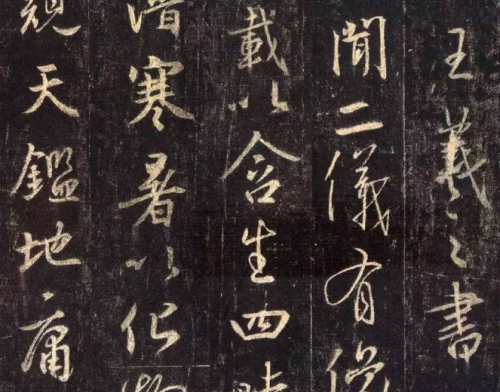 王羲之書
聞二儀有像
載以含生四時
潛寒暑以化物
窺天鑑地庸